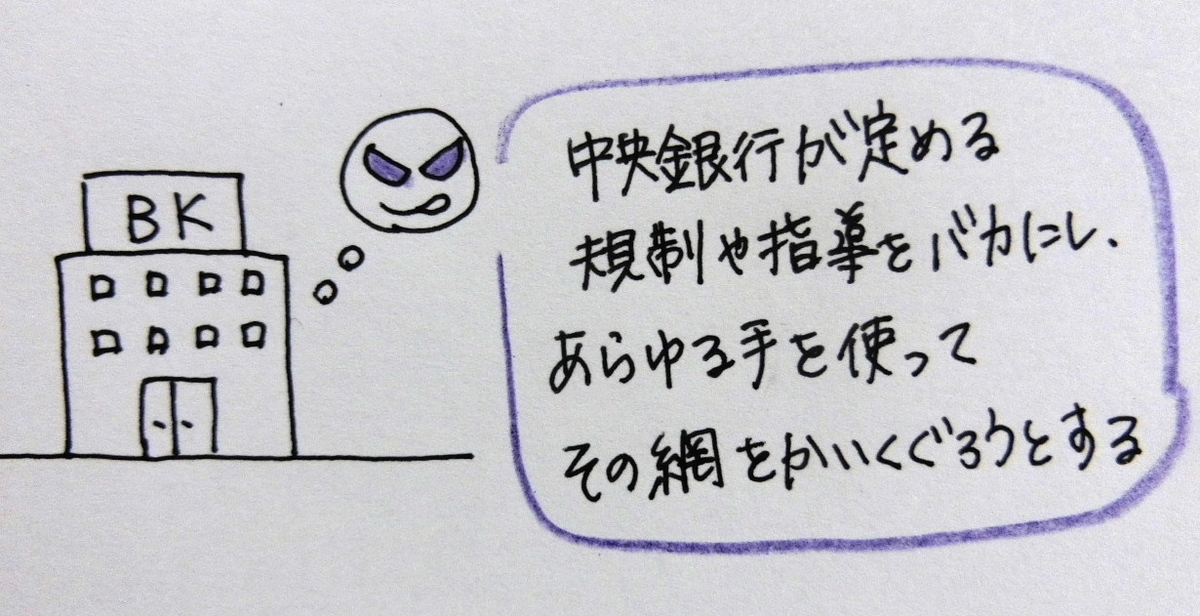 BK
中央銀行が定める
規制や指導をバカにし、
あらゆる手を使って
その網をかいくぐろうとする